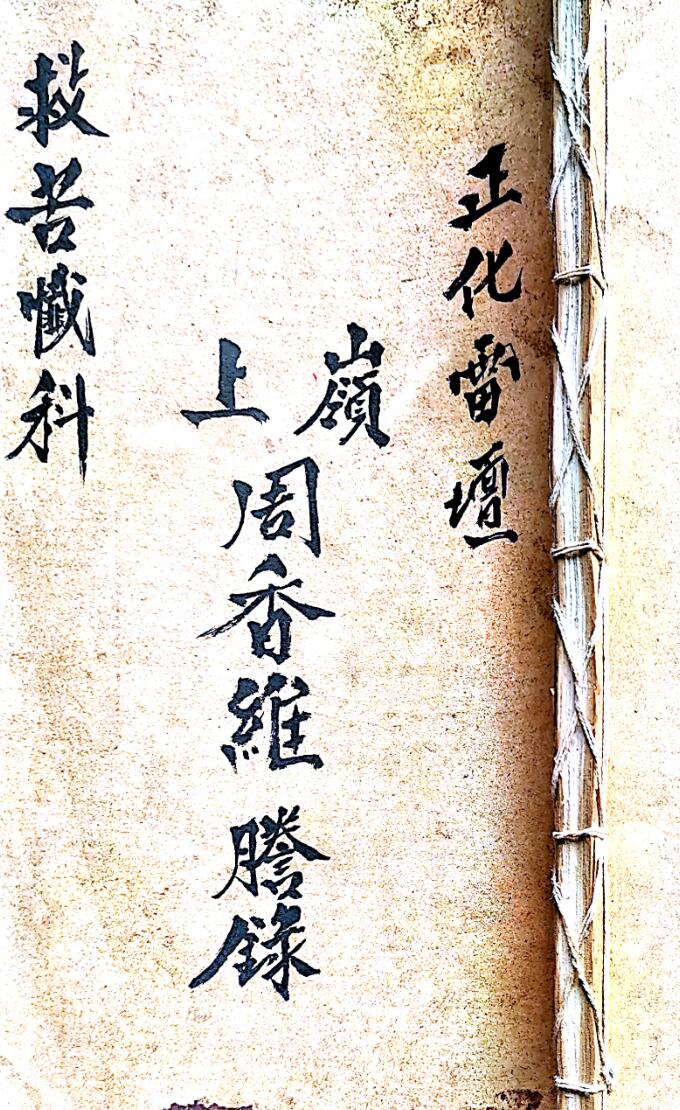 正化雷壇
嶺上
周香維謄錄
救苦懺科